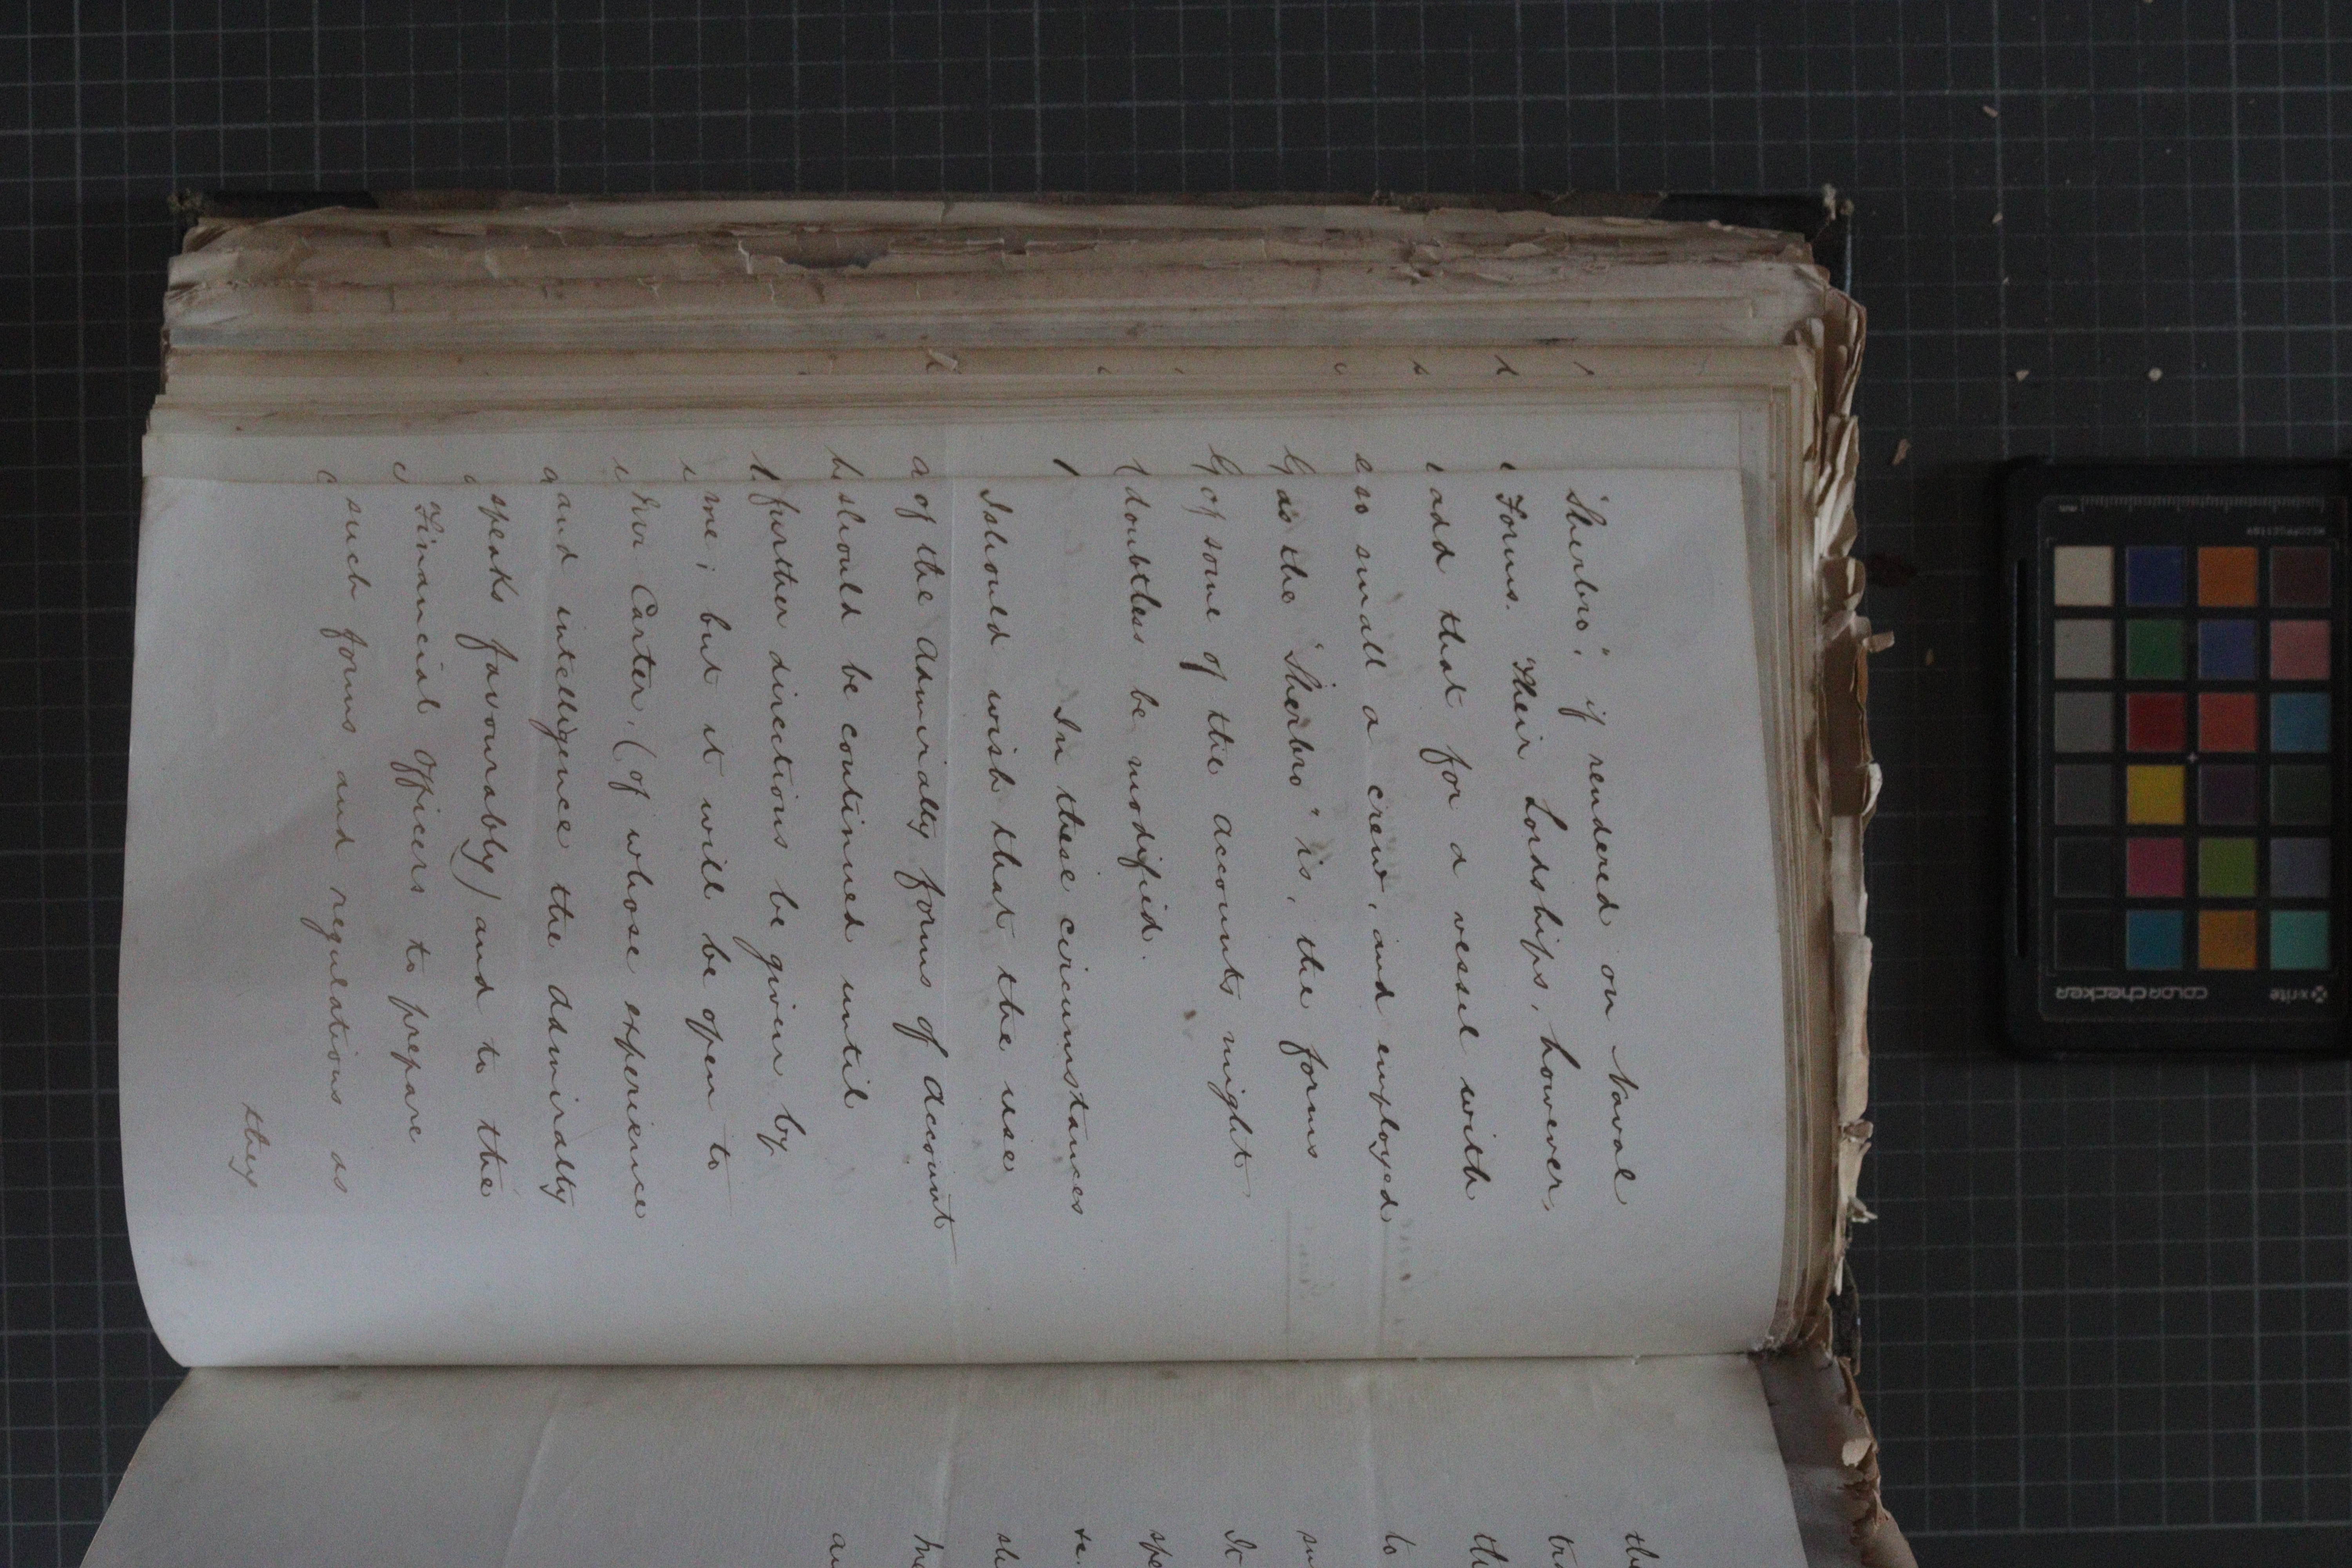 "Sherbro", if rendered on Naval
Forms. Their Lordships, however,
add that for a vessel with
so small a crew, and employed
as the "Sherbro" is, the forms
of some of the accounts might
doubtless be modified.
In these circumstances
I should wish that the use
of the Admiralty forms of Account
should be continued until
further directions be given by
me; but it will be open to
Carter, (of whose experience
and intelligence the Admiralty
speaks favourably) and to the
Financial Officers to prepare
such forms and regulations as
they
the
th
to
It
spe
au
x-rite
colorchecker